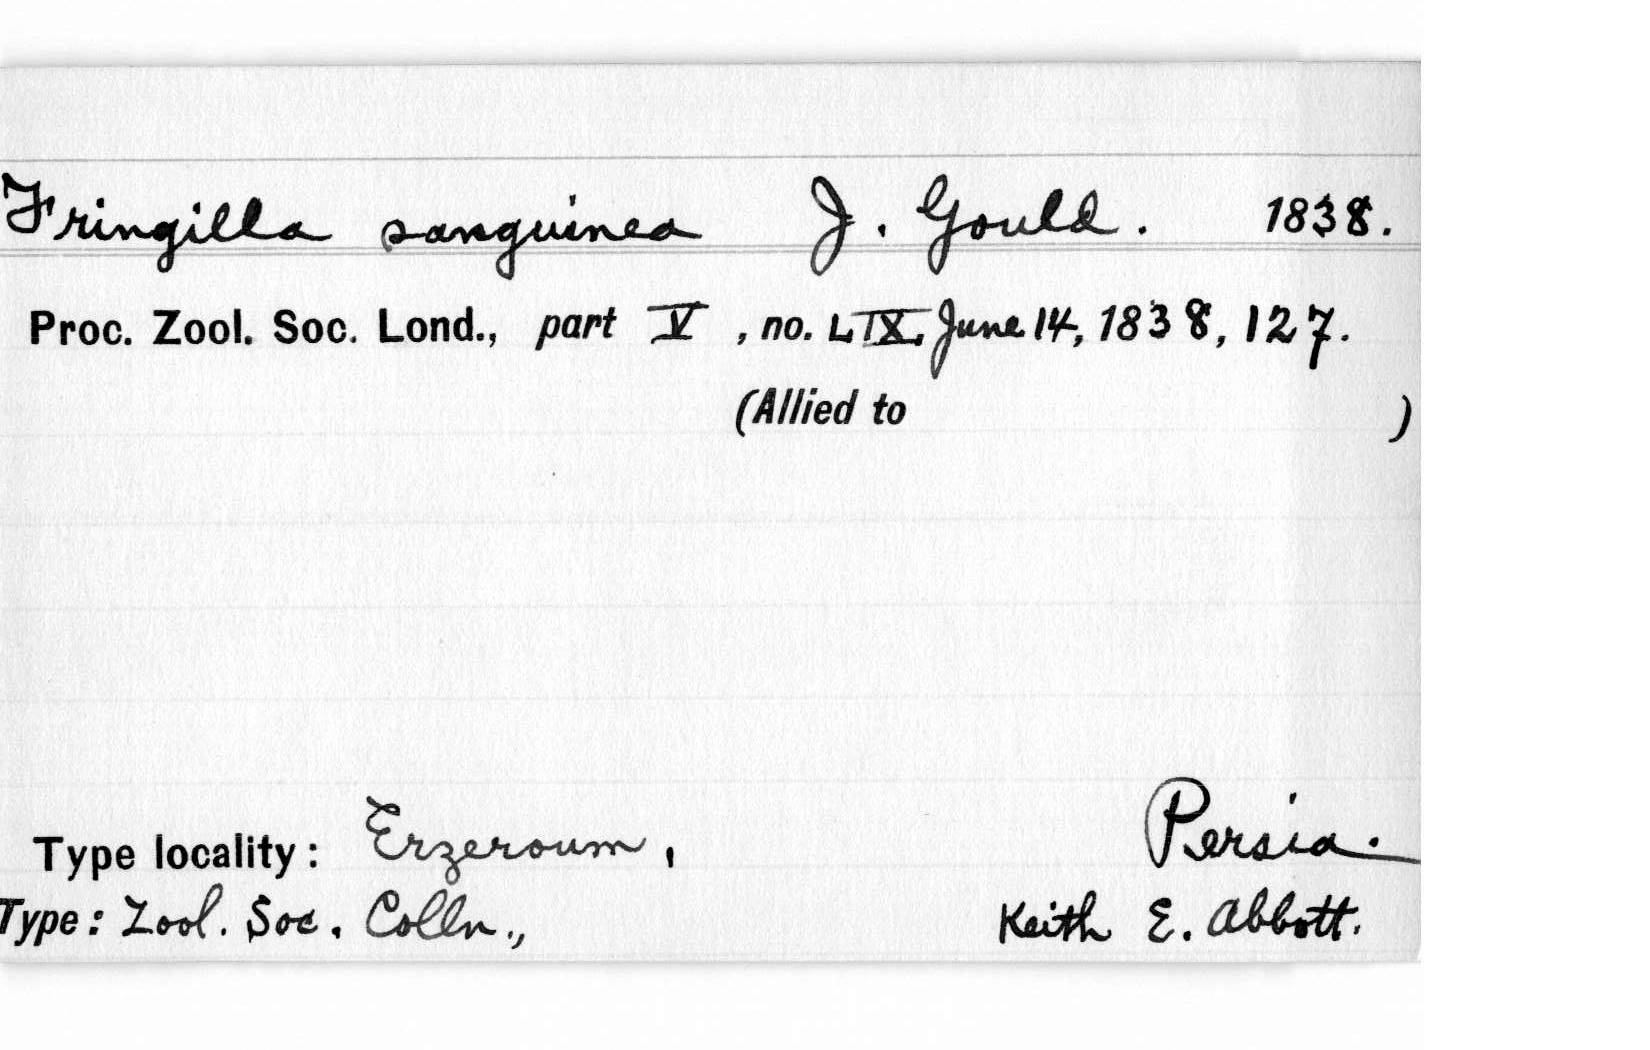 Fringilla sanguinea J. Gould. 1838.
Proc. Zool. Soc. Lond., part V, no. LIX, June 14, 1838, 127.
(Allied to )
Type locality: Erzeroum, Persia.
Type: Zool. Soc. Colln., Keith E. Abbott.